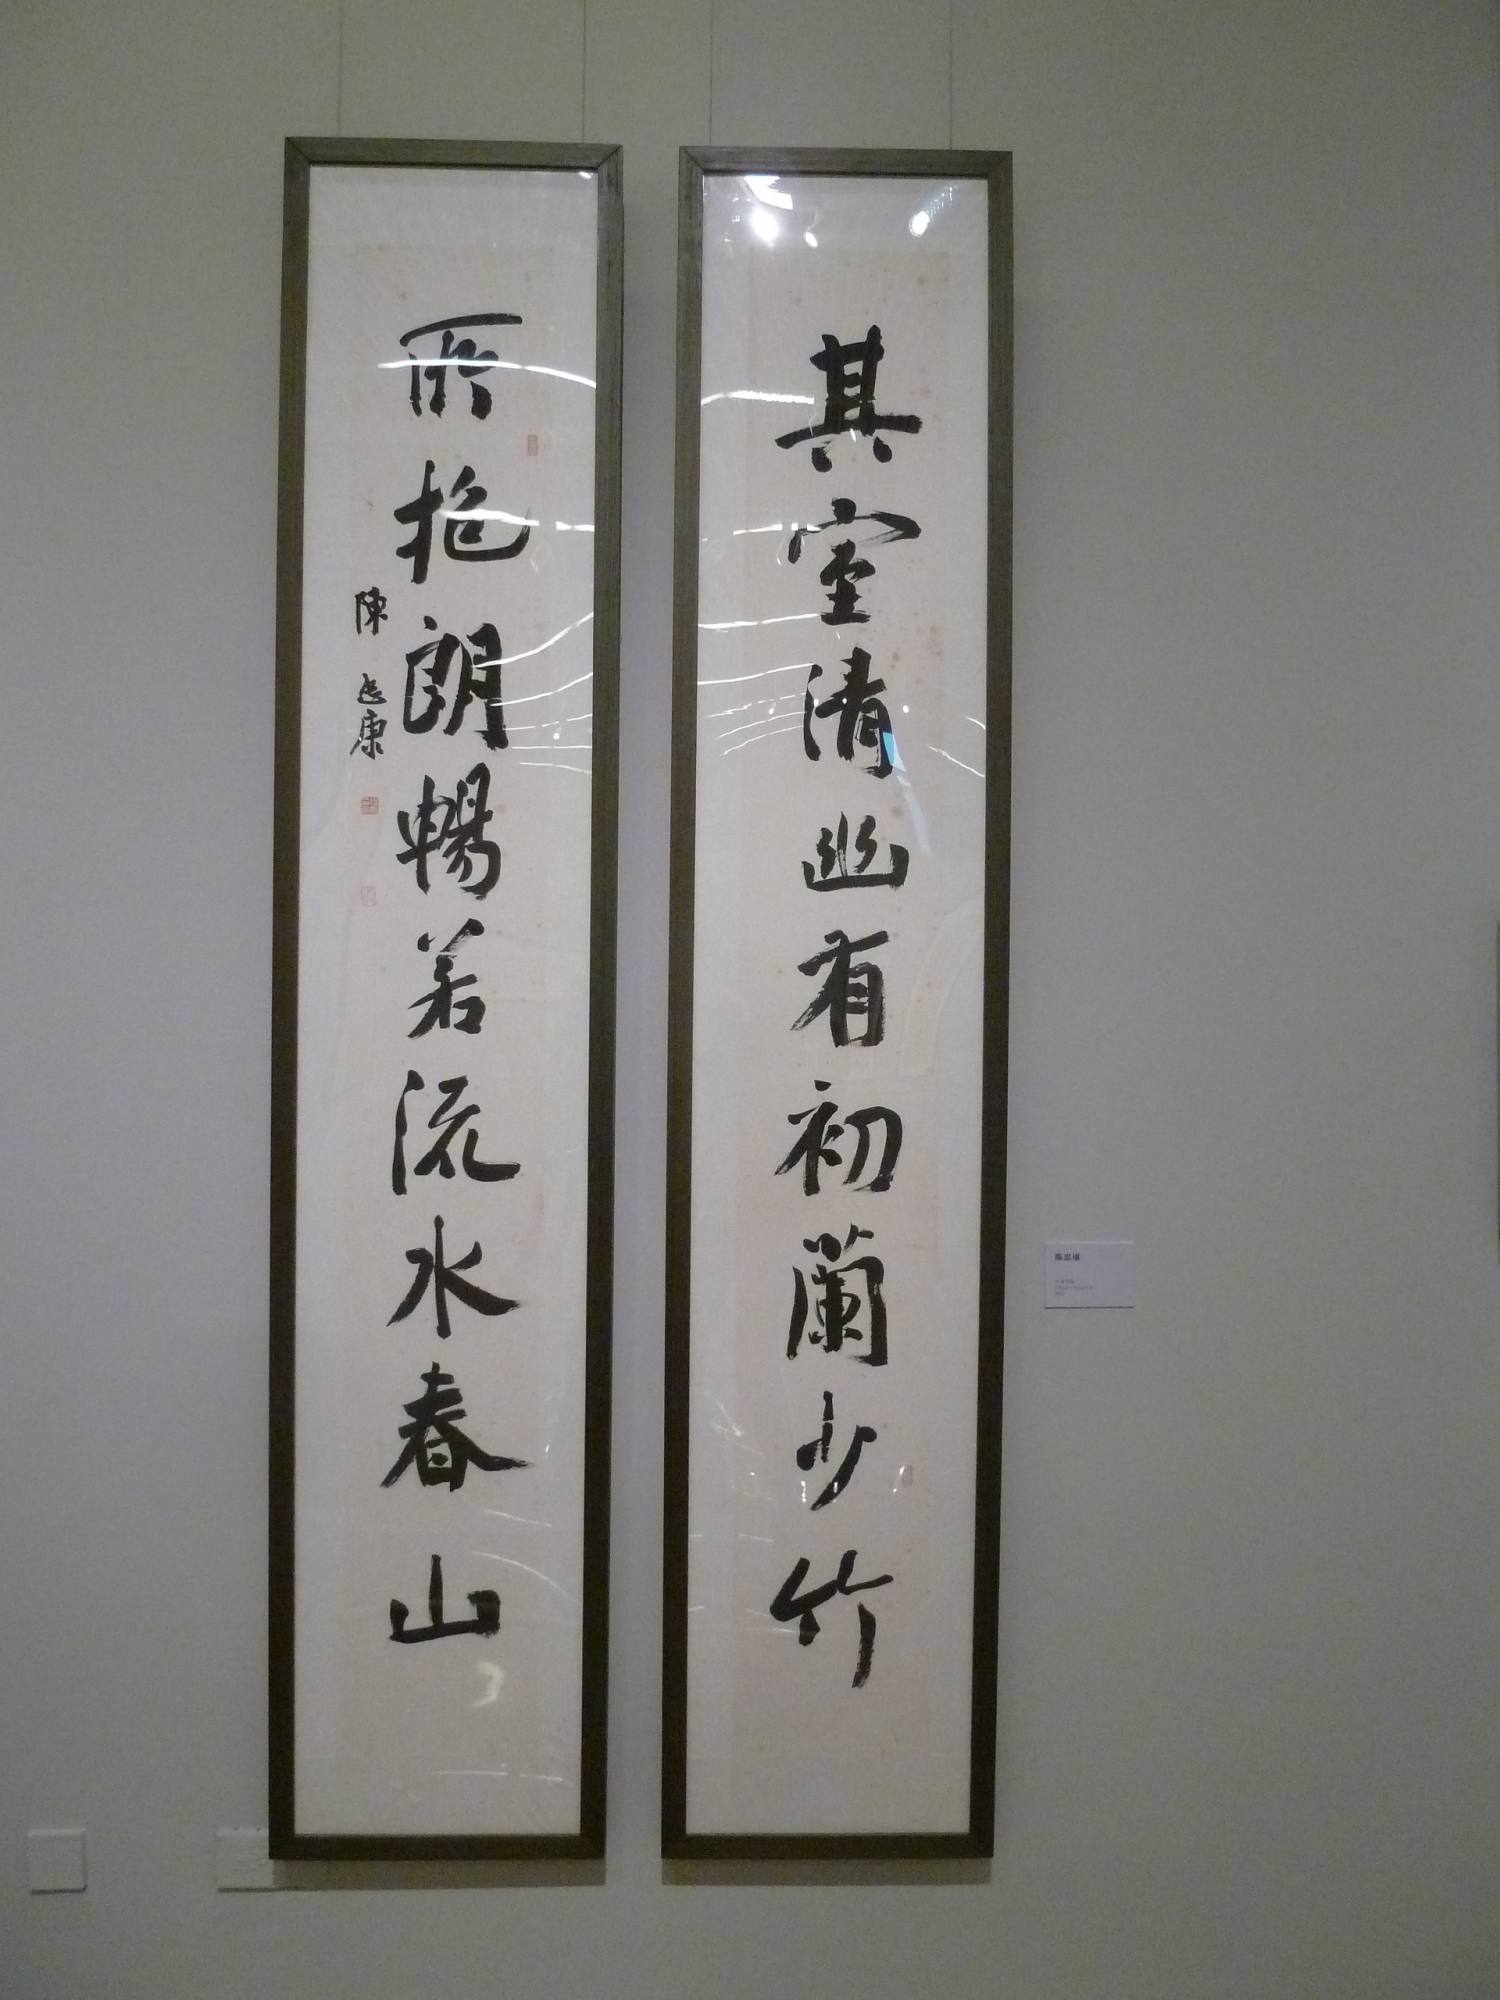 其室清幽有初蘭少竹
所抱朗暢若流水春山
陳忠康
陈忠康